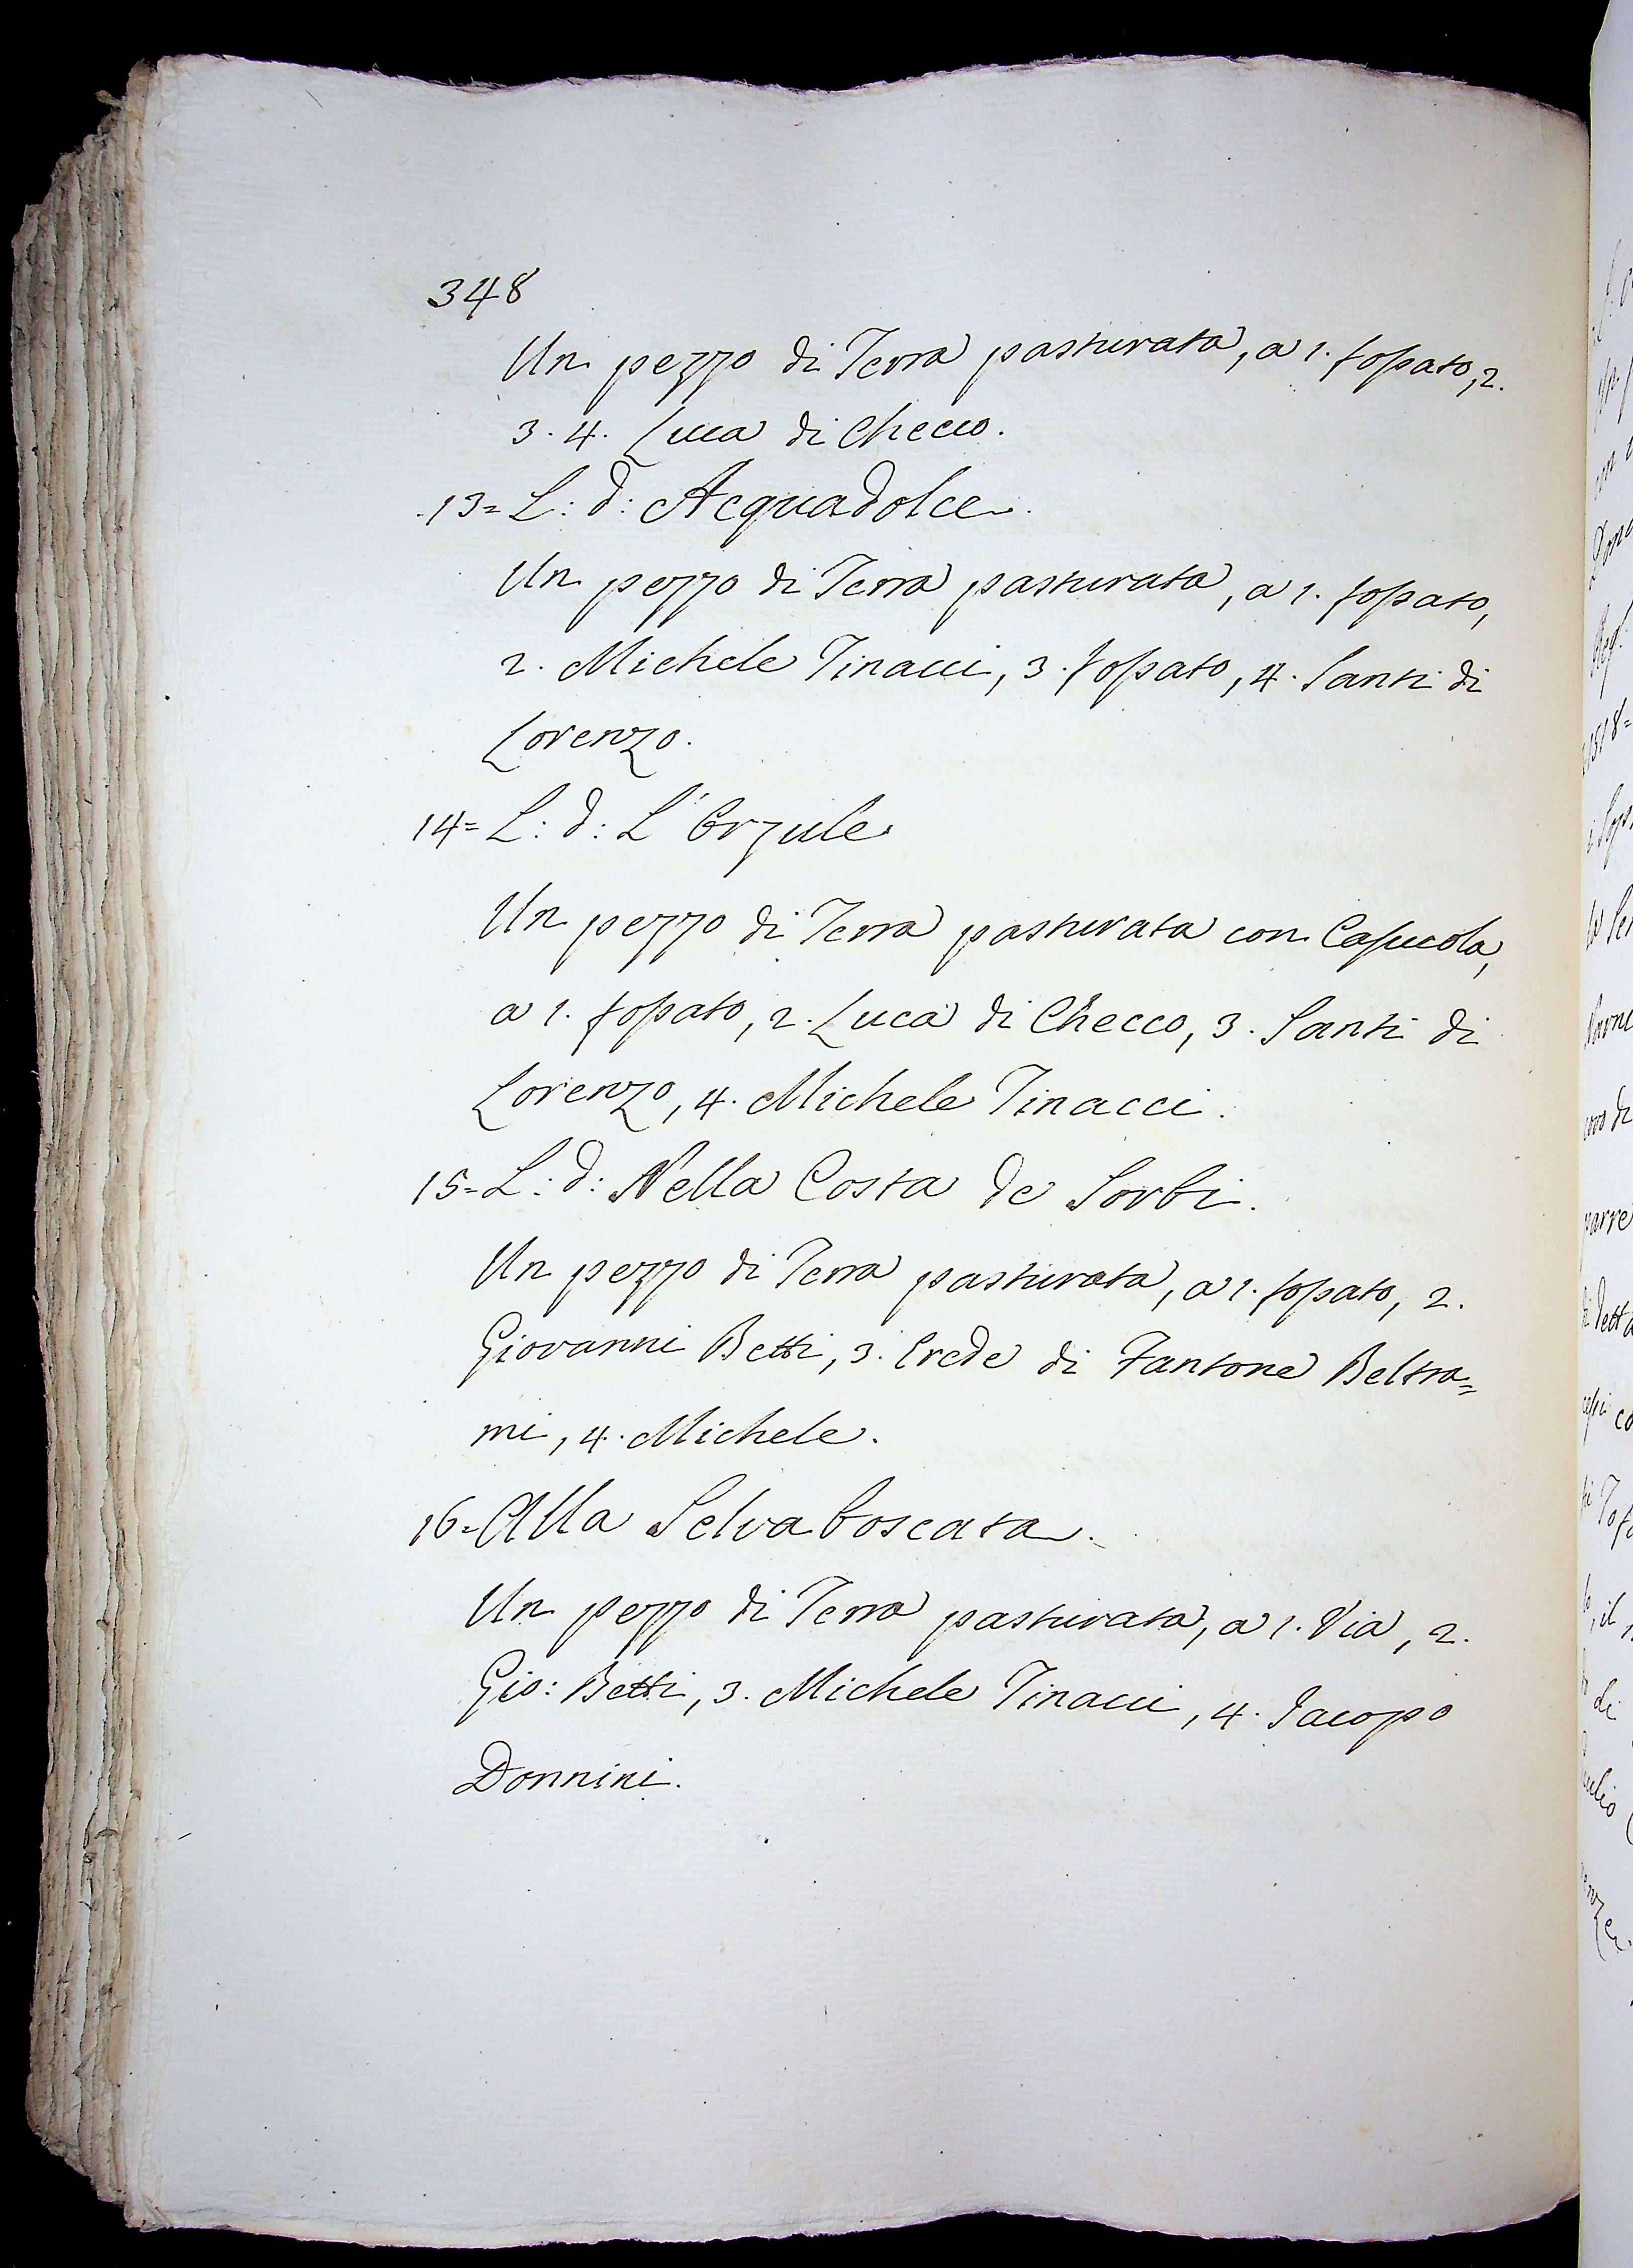 348
Un pezzo di Terra pasturata, a 1. fossato, 2.
3. 4. Luca di Checco.
13= L: d: Acquadolce.
Un pezzo di Terra pasturata, a 1. fossato,
2. Michele Tinacci, 3. fossato, 4. Santi di
Lorenzo.
14= L: d: L'Orzule
Un pezzo di Terra pasturata con Casuccola,
a 1. fossato, 2. Luca di Checco, 3. Santi di
Lorenzo, 4. Michele Tinacci.
15= L: d: Nella Costa de Sorbi.
Un pezzo di Terra pasturata, a 1. fossato, 2.
Giovanni Betti, 3. Erede di Fantone Beltra=
mi, 4. Michele.
16= Alla Selva boscata.
Un pezzo di Terra pasturata, a 1. Via, 2.
Gio: Betti, 3. Michele Tinacci, 4. Jacopo
Donnini.